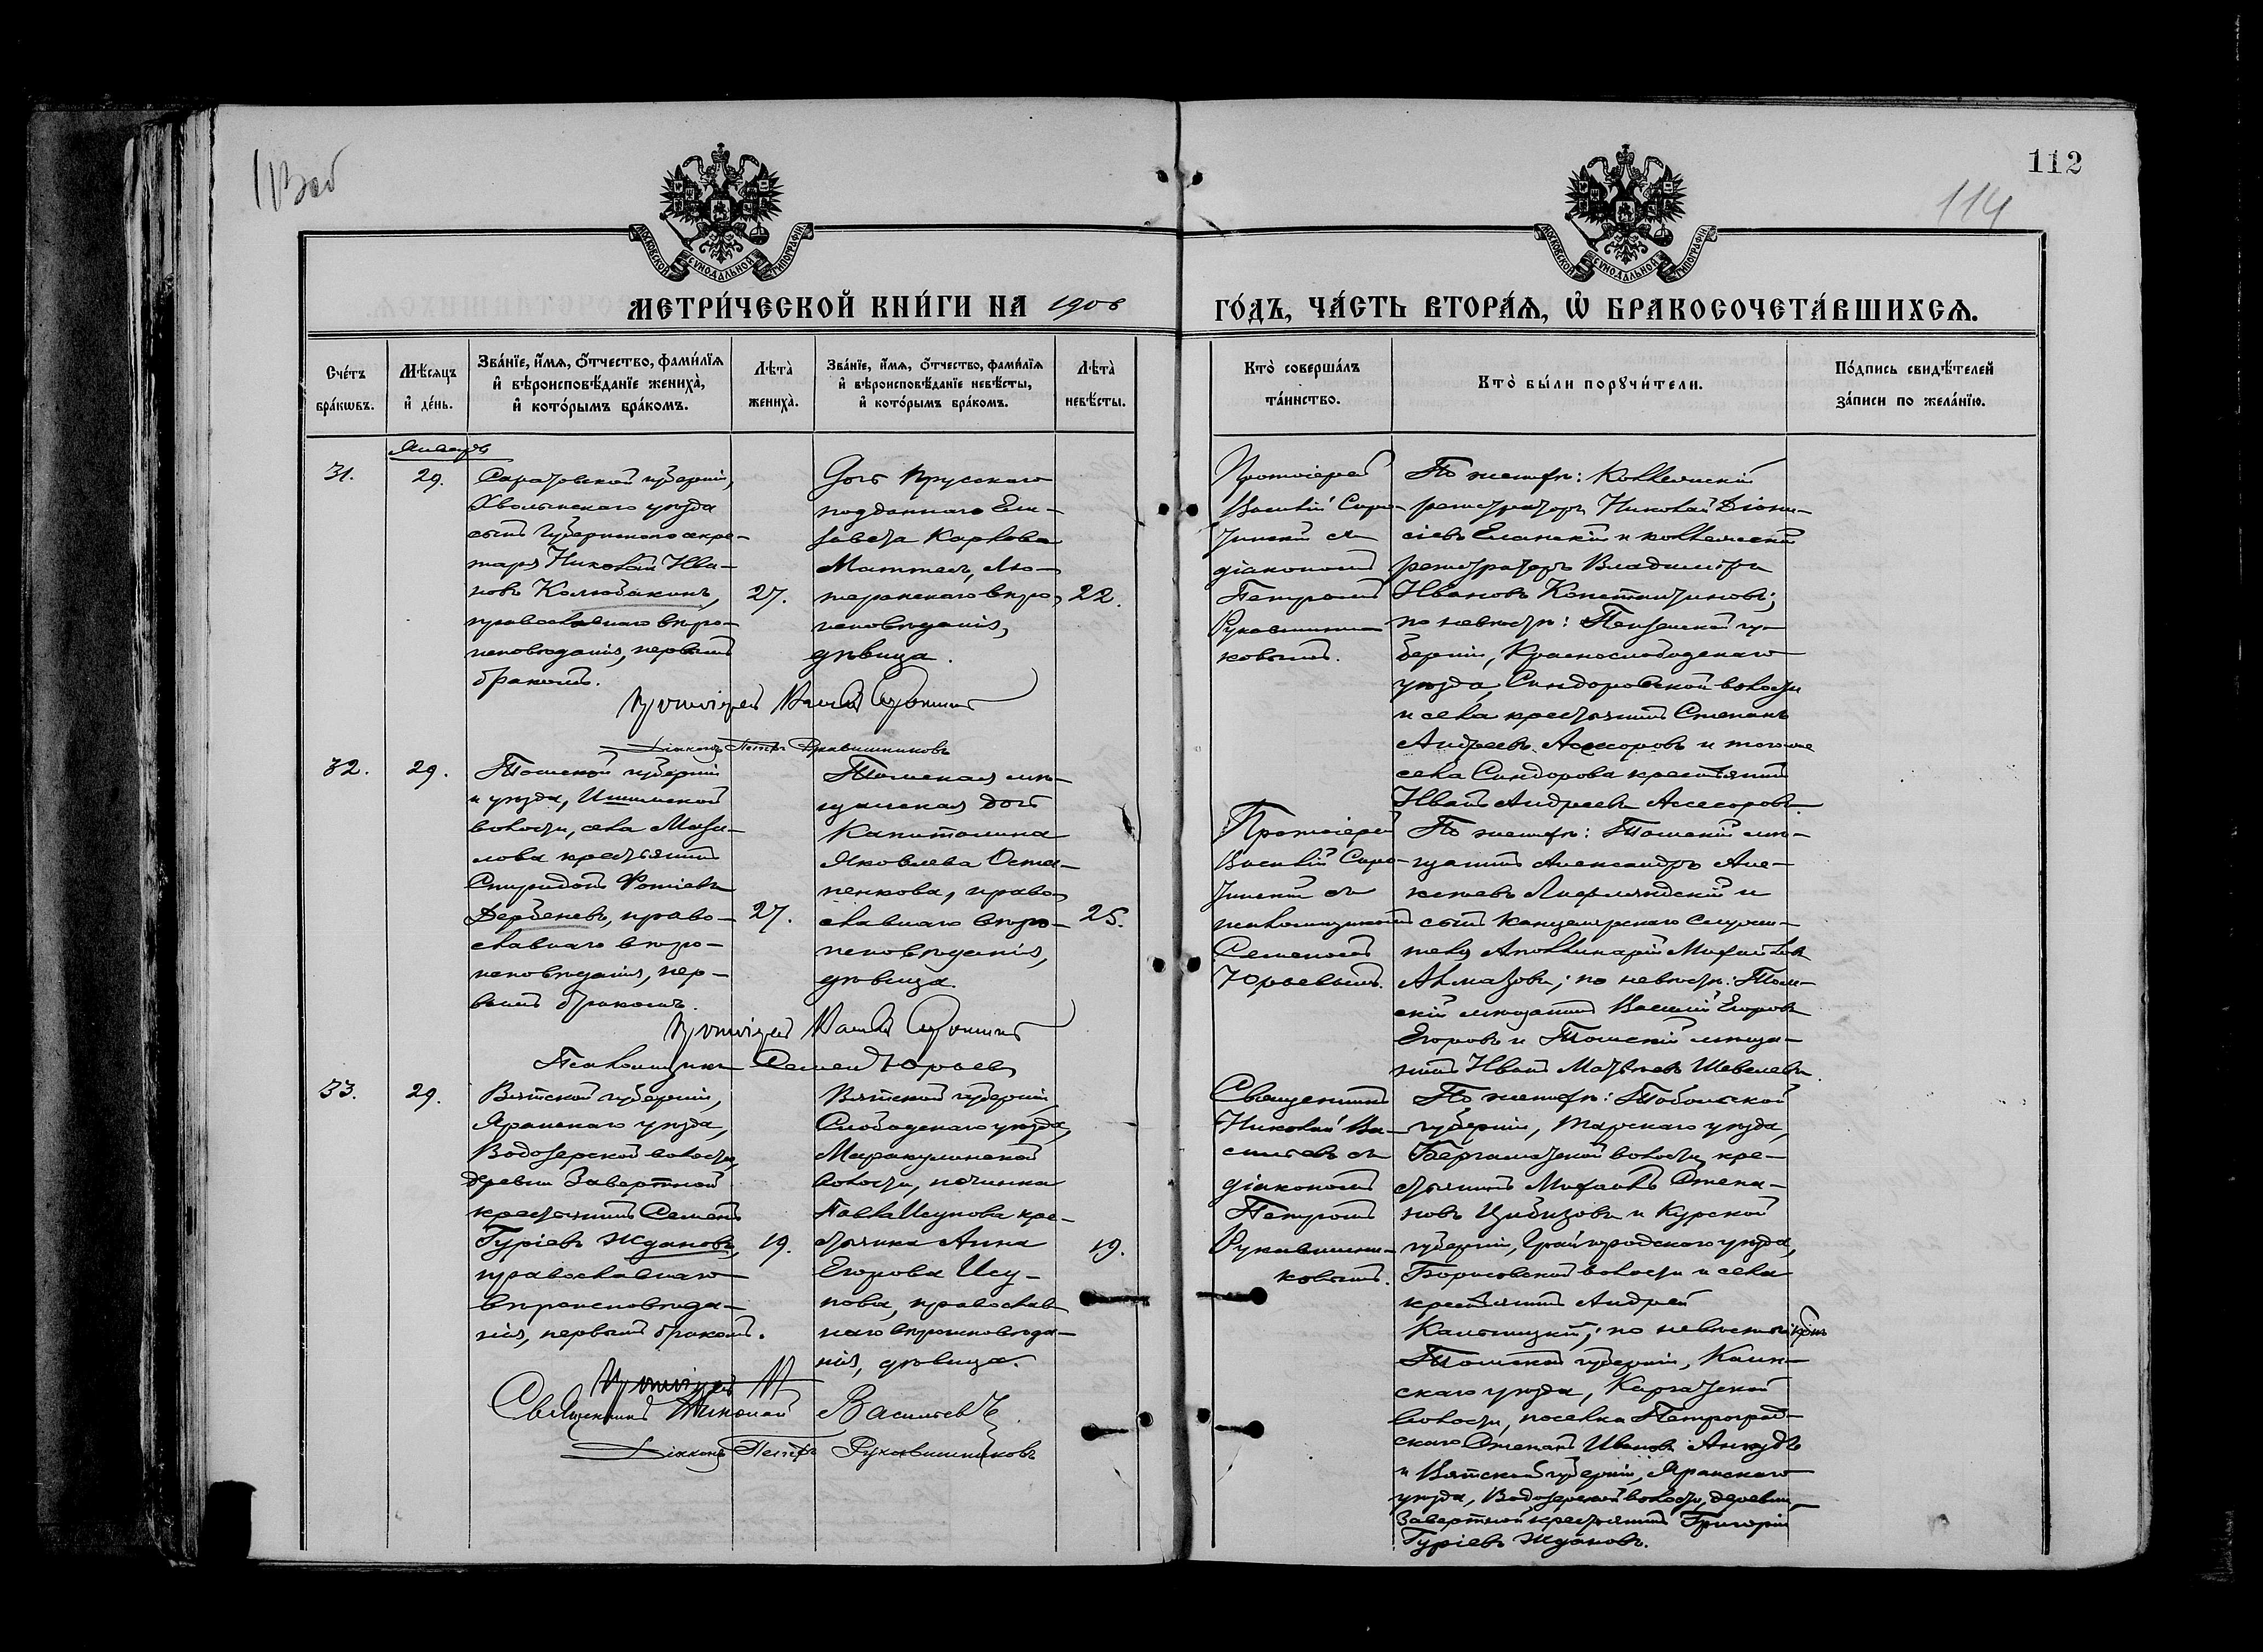 112
114
МОСКОВСКОЙ СѴНОДАЛЬНОЙ ТИПОГРАФІИ
МОСКОВСКОЙ СѴНОДАЛЬНОЙ ТИПОГРАФІИ
МЕТРИ́ЧЕСКОЙ КНИ́ГИ НА 1906
ГО́ДЪ, ЧА́СТЬ ВТОРА́Ѧ, Ѡ҆ БРАКОСОЧЕТА́ВШИХСѦ.
Сче́тъ бра́кѡвъ.
Мѣ́сѧцъ и҆ де́нь.
Зва́нїе, и҆́мѧ, ѻ҆́тчество, фами́лїѧ
и҆ вѣроисповѣ́данїе жениха̀,
и҆ кото́рымъ бра́комъ.
Лѣта̀ жениха̀.
Зва́нїе, и҆́мѧ, ѻ҆́тчество, фами́лїѧ
и҆ вѣроисповѣ́данїе невѣ́сты,
и҆ кото́рымъ бра́комъ.
Лѣта̀ невѣ́сты.
Кто̀ соверша́лъ
та́инство.
Кто̀ бы́ли порꙋчи́тели.
По́дпись свидѣ́телей
за́писи по жела́нїю.
Январь
31.
29.
Саратовской губерніи,
Хвалынскаго уѣзда
сынъ губернскаго секре-
таря Николай Ива-
новъ Колюбакинъ,
православнаго вѣро-
исповѣданія, первымъ
бракомъ.
27.
Дочь Прусскаго
подданнаго Ели-
завета Карлова
Маттель, лю-
теранскаго вѣро-
исповѣданія,
дѣвица.
22.
Протоіерей
Василій Сиро-
тинскій съ
діакономъ
Петромъ
Рукавишни-
ковымъ.
По женихѣ: Коллежскій
регистраторъ Николай Діони-
сіевъ Еланскій и коллежскій
регистраторъ Владиміръ
Ивановъ Константиновъ;
по невѣстѣ: Пензенской гу-
берніи, Краснослободскаго
уѣзда, Синдоровской волости
и села крестьянинъ Степанъ
Андреевъ Асессоровъ и того же
села Синдорова крестьянинъ
Иванъ Андреевъ Асессоровъ.
Протоіерей Василій Сиротинскій
Діаконъ Петръ Рукавишниковъ
32.
29.
Томской губерніи
и уѣзда, Ишимской
волости, села Мази-
лова крестьянинъ
Спиридонъ Фотіевъ
Дербеневъ, право-
славнаго вѣро-
исповѣданія, пер-
вымъ бракомъ.
27.
Томская мѣ-
щанская дочь
Капитолина
Яковлева Оста-
пенкова, право-
славнаго вѣро-
исповѣданія,
дѣвица.
25.
Протоіерей
Василій Сиро-
тинскій съ
псаломщикомъ
Семеномъ
Юрьевымъ.
По женихѣ: Томскій мѣ-
щанинъ Александръ Але-
ксѣевъ Лифляндскій и
сынъ канцелярскаго служи-
теля Аполлинарій Михайловъ
Алмазовъ; по невѣстѣ: Том-
скій мѣщанинъ Василій Егоровъ
Егоровъ и Томскій мѣща-
нинъ Иванъ Матвѣевъ Шевелевъ.
Протоіерей Василій Сиротинскій
Псаломщикъ Семенъ Юрьевъ
33.
29.
Вятской губерніи,
Яранскаго уѣзда,
Водозерской волости,
деревни Завертной
крестьянинъ Семенъ
Гуріевъ Ждановъ,
православнаго
вѣроисповѣда-
нія, первымъ бракомъ.
19.
Вятской губерніи,
Слободскаго уѣзда,
Маракулинской
волости, починка
Павла Исупова кре-
стьянка Анна
Егорова Ису-
пова, православ-
наго вѣроисповѣда-
нія, дѣвица.
19.
Священникъ
Николай Ва-
сильевъ съ
діакономъ
Петромъ
Рукавишни-
ковымъ.
По женихѣ: Тобольской
губерніи, Тарскаго уѣзда,
Бергаматской волости, кре-
стьянинъ Михаилъ Степа-
новъ Цибизовъ и Курской
губерніи, Грайворонскаго уѣзда,
Борисовской волости и села
крестьянинъ Андрей
Кальницкій; по невѣстѣ:
Томской губерніи, Каин-
скаго уѣзда, Каргатской
волости, поселка Петроград-
скаго Степанъ Ивановъ
и Вятской губерніи, Яранскаго
уѣзда, Водозерской волости, деревни
Завертной крестьянинъ Григорій
Гуріевъ Ждановъ.
Протоіерей
Священникъ Николай Васильевъ
Діаконъ Петръ Рукавишниковъ